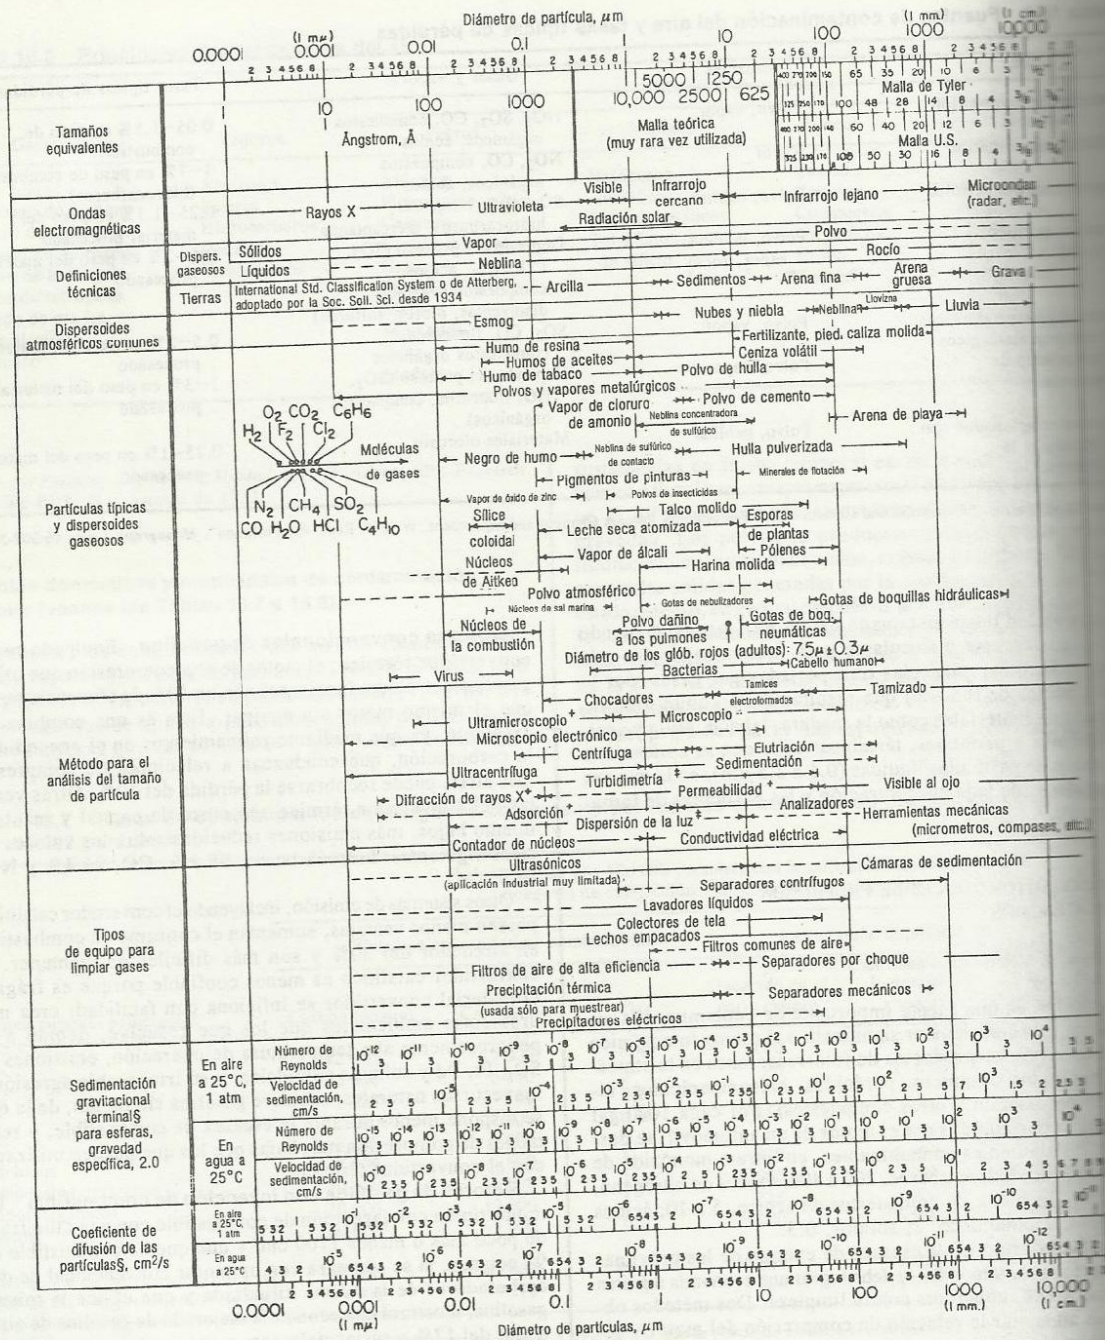 Diámetro de partícula, μm
(I mμ) (I mm.) (I cm.)
0.0001 0.001 0.01 0.1 1 10 100 1000 10,000
2 3 4 5 6 8 2 3 4 5 6 8 2 3 4 5 6 8 2 3 4 5 6 8 2 3 4 5 6 8 2 3 4 5 6 8 2 3 4 5 6 8 2 3 4 5 6 8
Tamaños
equivalentes
1 10 100 1000
Ångstrom, Å
5000 1250
10,000 2500 625
Malla teórica
(muy rara vez utilizada)
400 270 200 150 65 35 20 10 6 3
Malla de Tyler
325 250 170 100 48 28 14 8 4
400 270 200 140 60 40 20 12 6 3
Malla U.S.
325 230 170 100 50 30 16 8 4
Ondas
electromagnéticas
Rayos X
Ultravioleta
Visible
Infrarrojo
cercano
Infrarrojo lejano
Microondas
(radar, etc.)
Radiación solar
Definiciones
técnicas
Dispers.
gaseosos
Sólidos
Vapor
Polvo
Líquidos
Neblina
Rocío
Tierras
International Std. Classification System o de Atterberg,
adoptado por la Soc. Soil. Sci. desde 1934
Arcilla
Sedimentos
Arena fina
Arena
gruesa
Grava
Dispersoides
atmosféricos comunes
Esmog
Nubes y niebla
Neblina
Llovizna
Lluvia
Partículas típicas
y dispersoides
gaseosos
Humo de resina
Fertilizante, pied. caliza molida
Humos de aceites
Ceniza volátil
Humo de tabaco
Polvo de hulla
Polvos y vapores metalúrgicos
Vapor de cloruro
de amonio
Polvo de cemento
Neblina concentradora
de sulfúrico
Arena de playa
O₂ CO₂ C₆H₆
H₂ F₂ Cl₂
Moléculas
de gases
N₂ CH₄ SO₂
CO H₂O HCl C₄H₁₀
Negro de humo
Neblina de sulfúrico
de contacto
Hulla pulverizada
Pigmentos de pinturas
Minerales de flotación
Vapor de óxido de zinc
Polvos de insecticidas
Sílice
coloidal
Talco molido
Leche seca atomizada
Esporas
de plantas
Núcleos
de Aitken
Vapor de álcali
Pólenes
Harina molida
Polvo atmosférico
Núcleos de sal marina
Gotas de nebulizadores
Gotas de boquillas hidráulicas
Núcleos de
la combustión
Polvo dañino
a los pulmones
Gotas de boq.
neumáticas
Diámetro de los glób. rojos (adultos): 7.5μ±0.3μ
Virus
Bacterias
Cabello humano
Método para el
análisis del tamaño
de partícula
Chocadores
Tamices
electroformados
Tamizado
Ultramicroscopio +
Microscopio
Microscopio electrónico
Centrífuga
Elutriación
Ultracentrífuga
Sedimentación
Turbidimetría ‡
Difracción de rayos X +
Permeabilidad +
Visible al ojo
Adsorción +
Dispersión de la luz ‡
Analizadores
Herramientas mecánicas
(micrometros, compases, etc.)
Contador de núcleos
Conductividad eléctrica
Tipos
de equipo para
limpiar gases
Ultrasónicos
(aplicación industrial muy limitada)
Cámaras de sedimentación
Separadores centrífugos
Lavadores líquidos
Colectores de tela
Lechos empacados
Filtros comunes de aire
Filtros de aire de alta eficiencia
Separadores por choque
Precipitación térmica
(usada sólo para muestrear)
Separadores mecánicos
Precipitadores eléctricos
Sedimentación
gravitacional
terminal§
para esferas,
gravedad
específica, 2.0
En aire
a 25°C,
1 atm
Número de
Reynolds
10⁻¹² 10⁻¹¹ 10⁻¹⁰ 10⁻⁹ 10⁻⁸ 10⁻⁷ 10⁻⁶ 10⁻⁵ 10⁻⁴ 10⁻³ 10⁻² 10⁻¹ 10⁰ 10¹ 10² 10³ 10⁴
Velocidad de
sedimentación,
cm/s
10⁻⁵ 10⁻⁴ 10⁻³ 10⁻² 10⁻¹ 10⁰ 10¹ 10² 10³
En
agua a
25°C
Número de
Reynolds
10⁻¹⁵ 10⁻¹⁴ 10⁻¹³ 10⁻¹² 10⁻¹¹ 10⁻¹⁰ 10⁻⁹ 10⁻⁸ 10⁻⁷ 10⁻⁶ 10⁻⁵ 10⁻⁴ 10⁻³ 10⁻² 10⁻¹ 10⁰ 10¹ 10² 10³ 10⁴
Velocidad de
sedimentación,
cm/s
10⁻¹⁰ 10⁻⁹ 10⁻⁸ 10⁻⁷ 10⁻⁶ 10⁻⁵ 10⁻⁴ 10⁻³ 10⁻² 10⁻¹ 10⁰ 10¹
Coeficiente de
difusión de las
partículas§, cm²/s
En aire
a 25°C
1 atm
10⁻¹ 10⁻² 10⁻³ 10⁻⁴ 10⁻⁵ 10⁻⁶ 10⁻⁷ 10⁻⁸ 10⁻⁹ 10⁻¹⁰ 10⁻¹¹
En agua
a 25°C
10⁻⁵ 10⁻⁶ 10⁻⁷ 10⁻⁸ 10⁻⁹ 10⁻¹⁰ 10⁻¹¹ 10⁻¹²
2 3 4 5 6 8 2 3 4 5 6 8 2 3 4 5 6 8 2 3 4 5 6 8 2 3 4 5 6 8 2 3 4 5 6 8 2 3 4 5 6 8 2 3 4 5 6 8
0.0001 0.001 0.01 0.1 1 10 100 1000 10,000
(I mμ) (I mm.) (I cm.)
Diámetro de partículas, μm